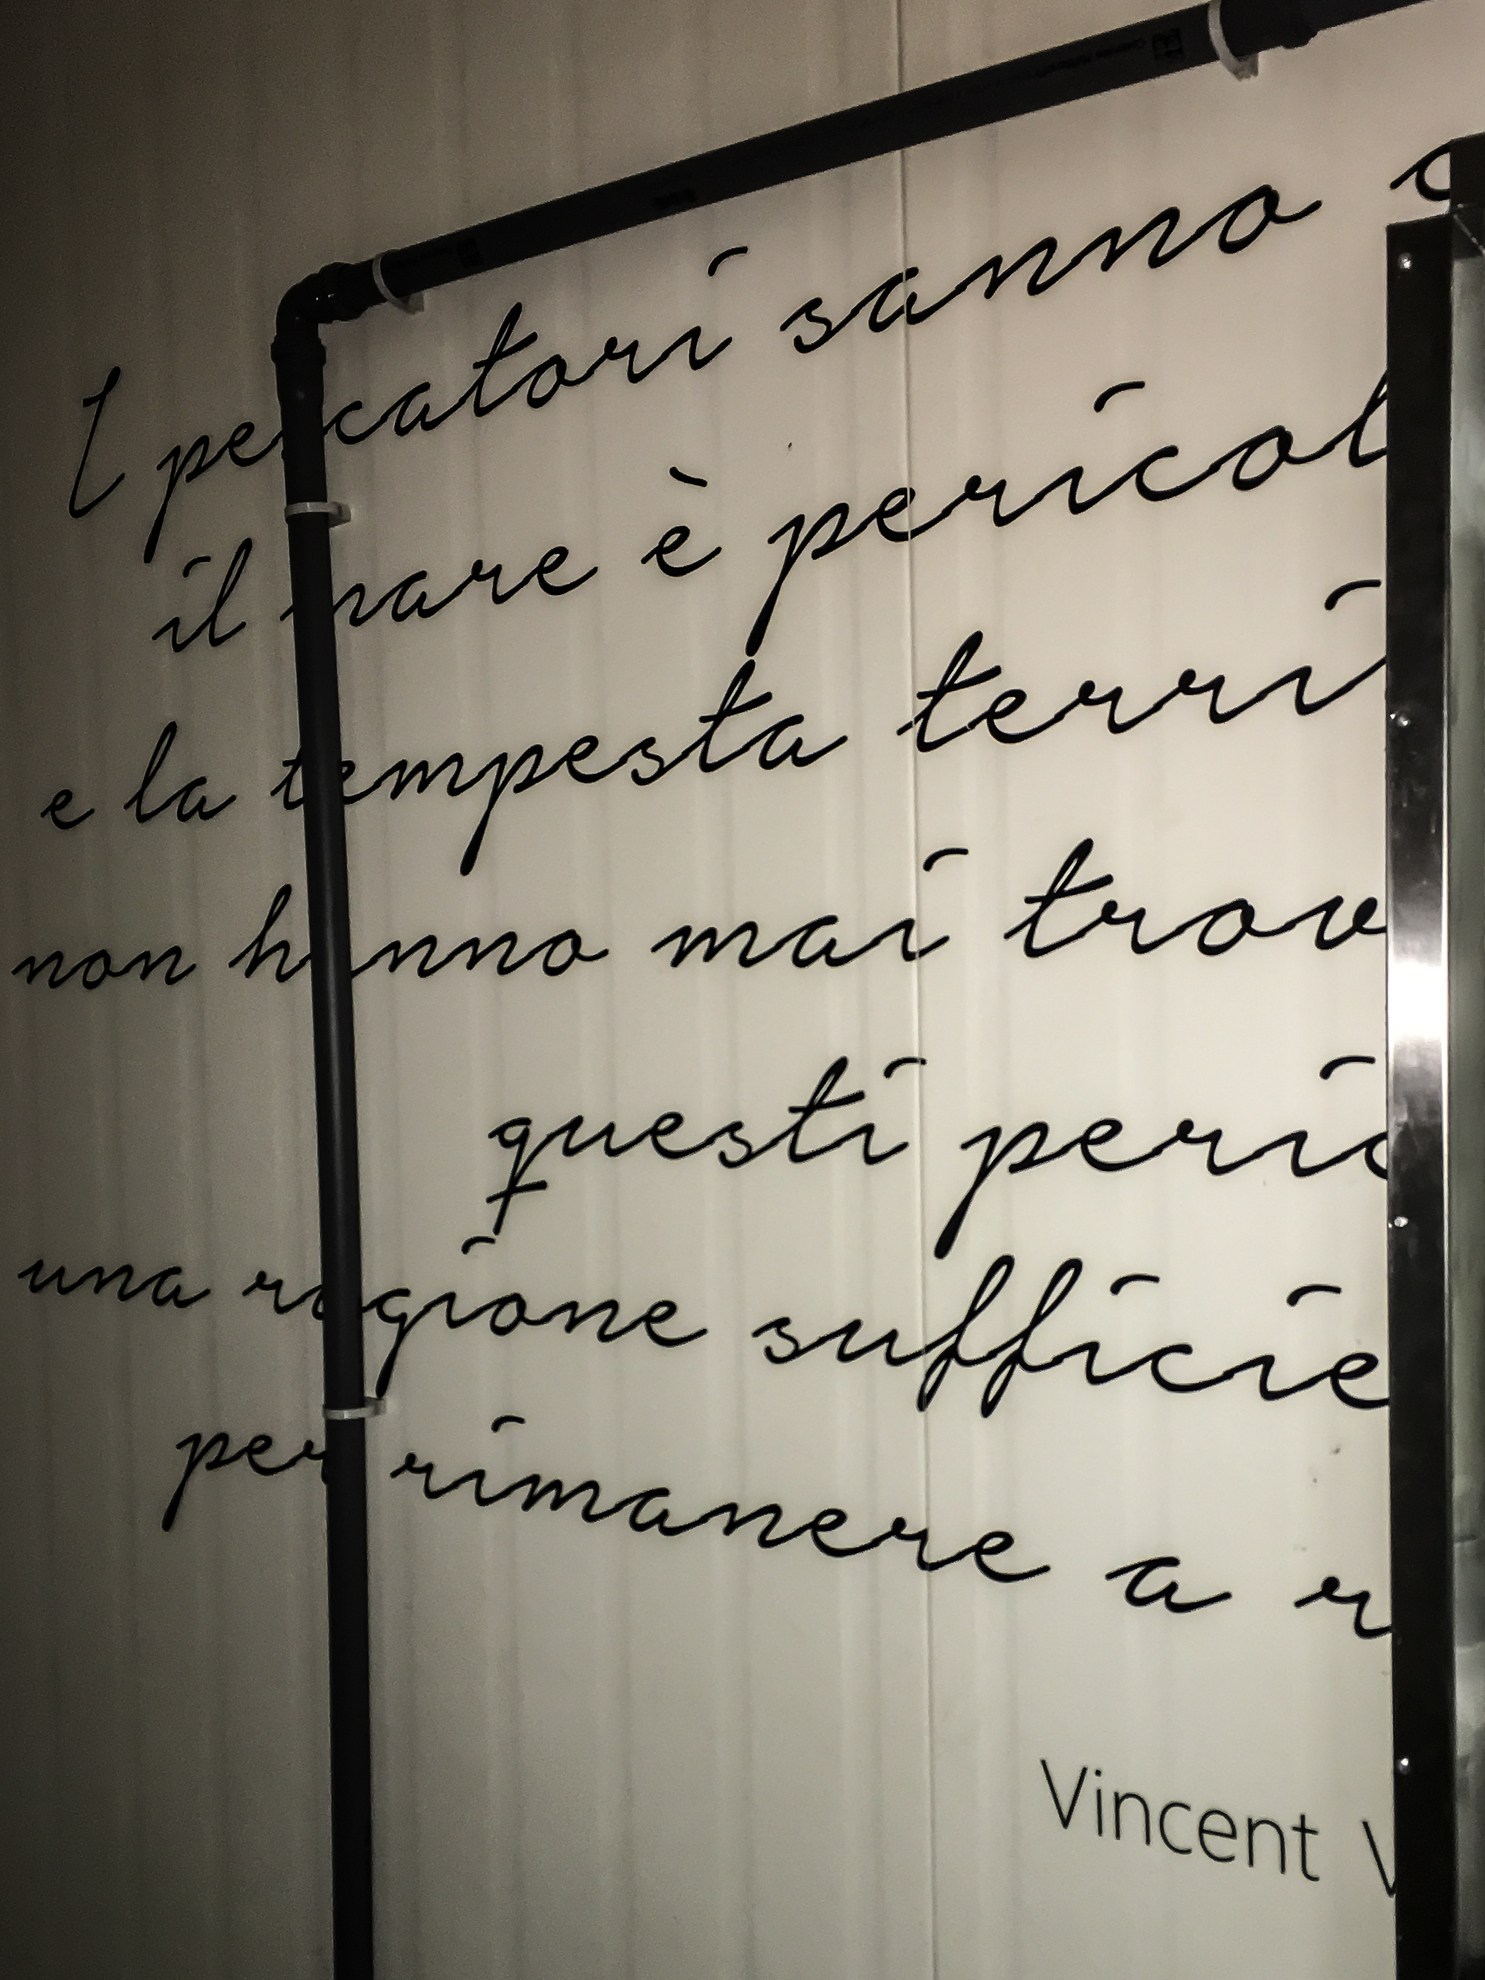 I pescatori sanno
il mare è pericol
e la tempesta terri
non hanno mai trov
questi peric
una ragione sufficie
per rimanere a r
Vincent V